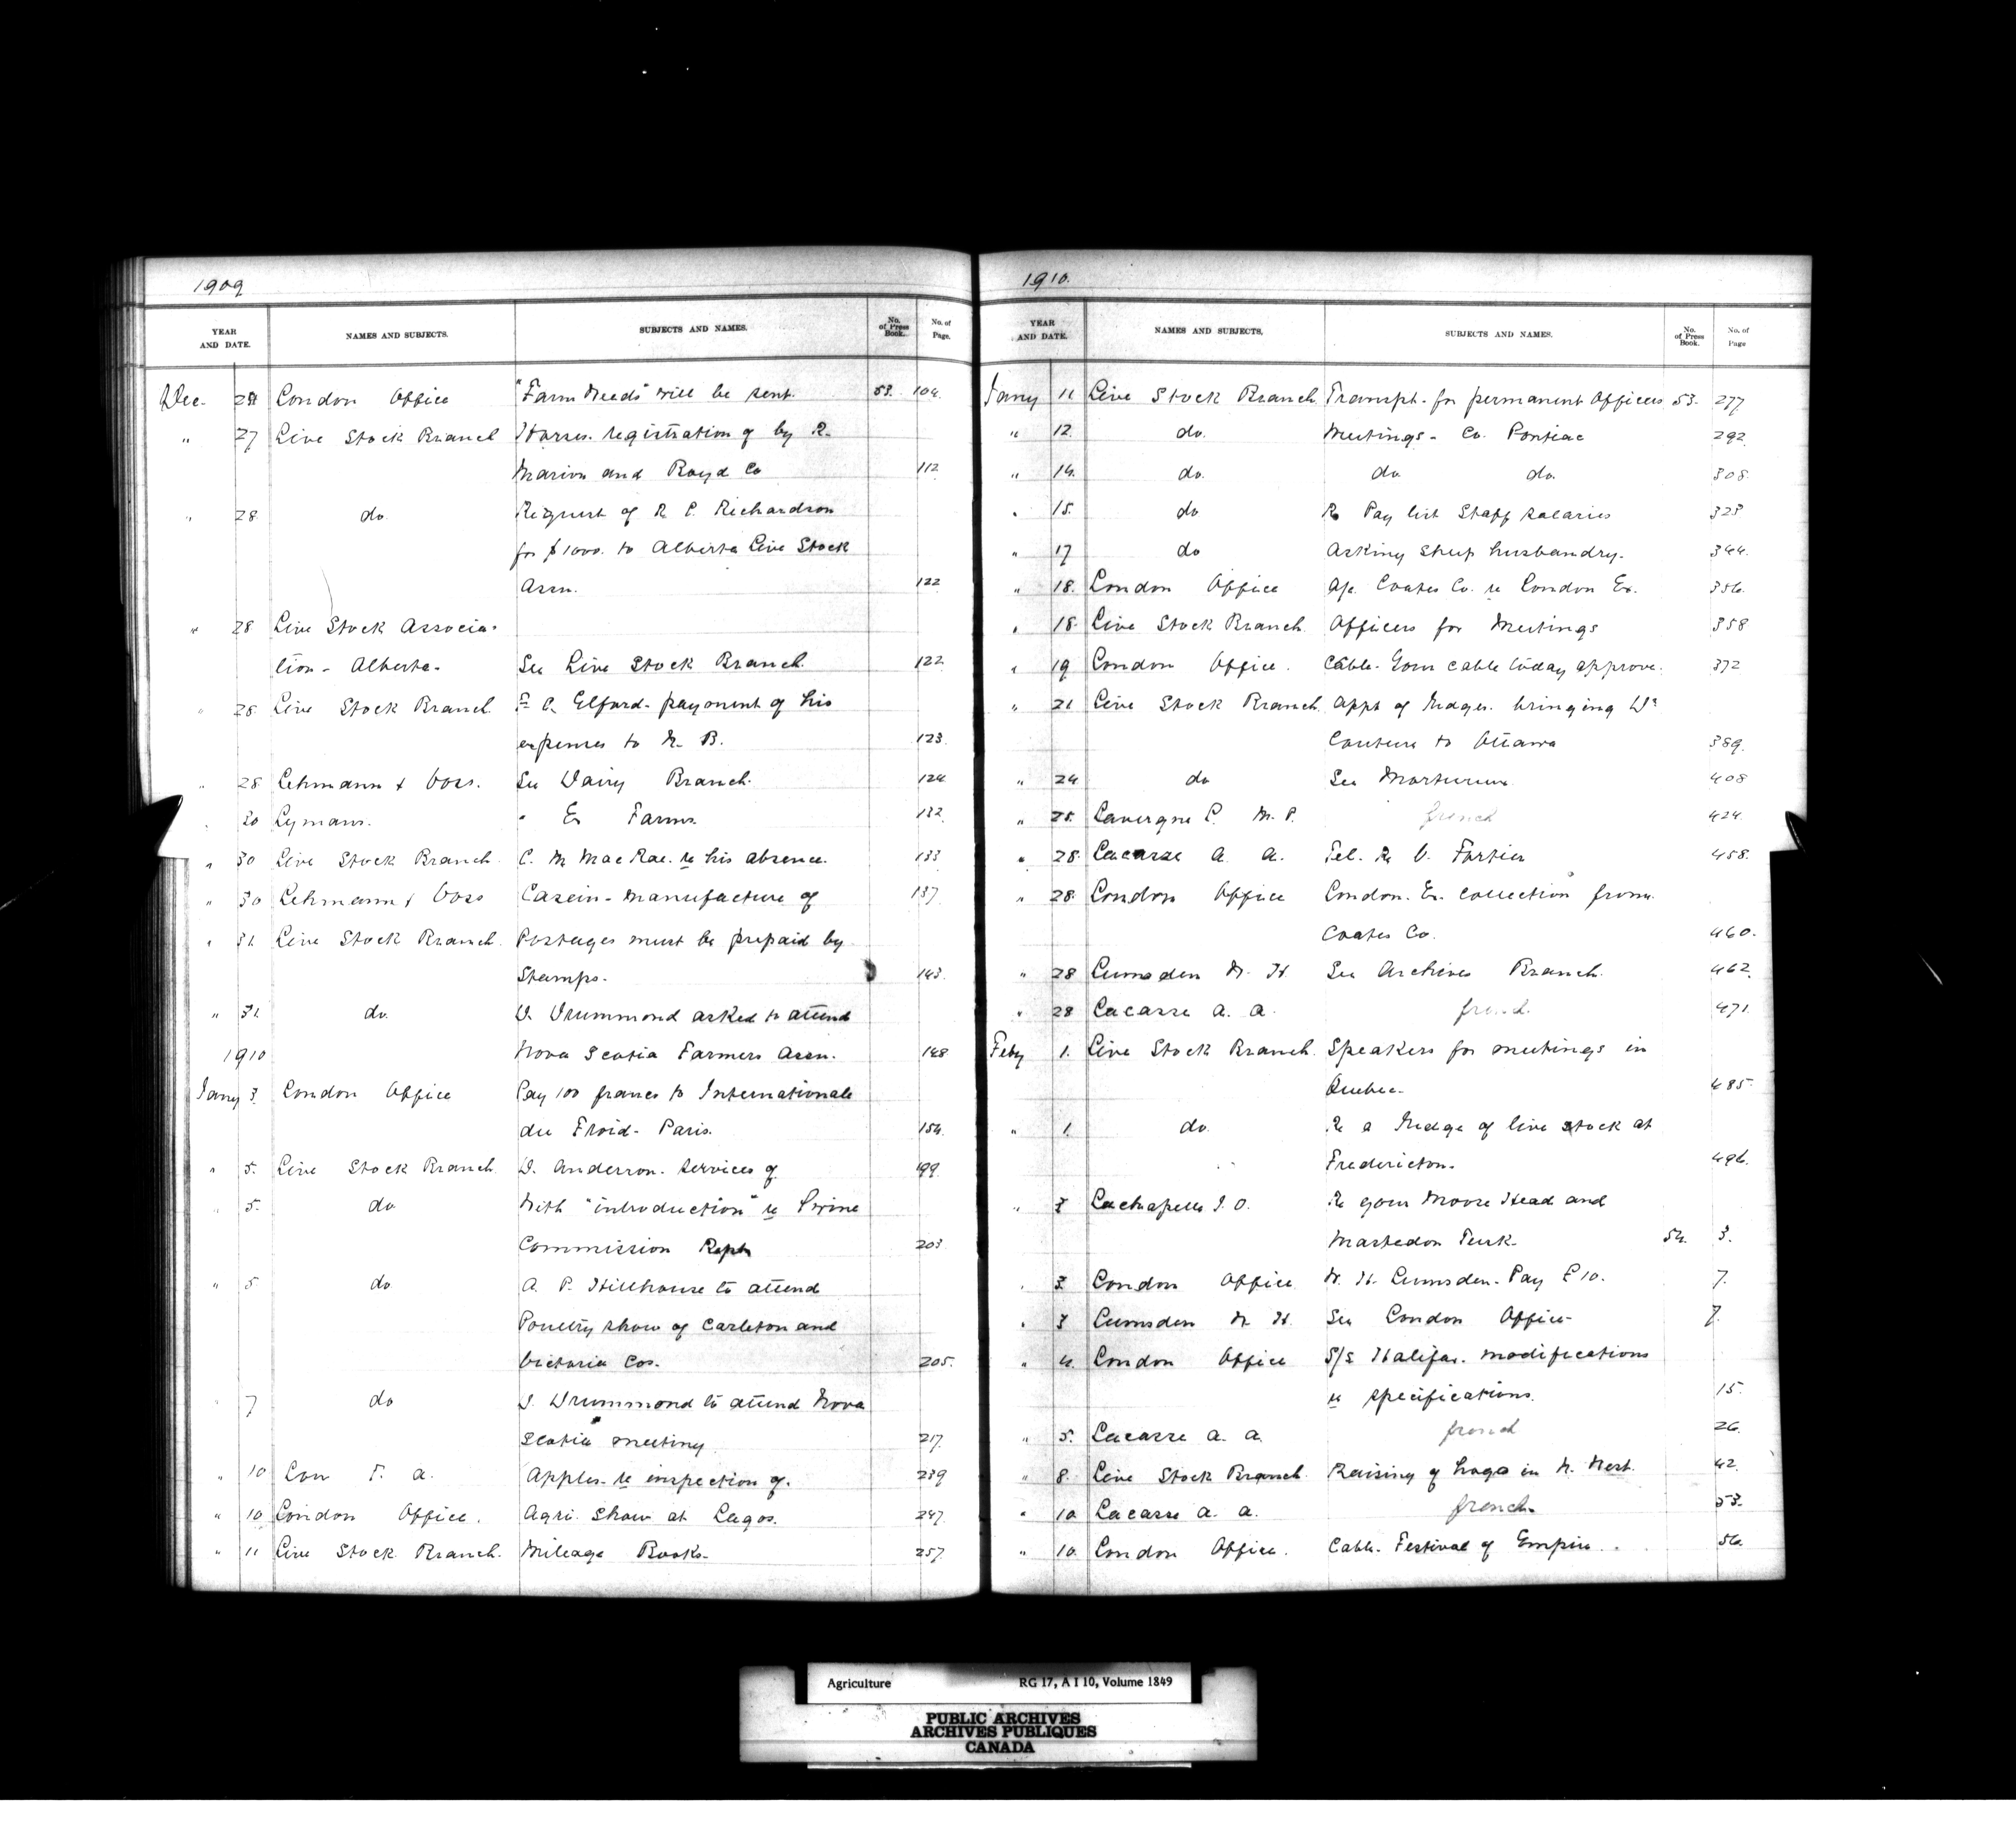 1909
YEAR AND DATE. NAMES AND SUBJECTS. SUBJECTS AND NAMES. No. of Press Book. No. of Page.
Dec. London Office "Farm Weeds" will be sent. 53. 104.
" 27 Live Stock Branch Horses. registration of by R.
Marion and Boyd Co 112
" 28 do Request of R. P. Richardson
for $1000. to Alberta Live Stock
Assn. 122
" 28 Live Stock Associa-
tion - Alberta. See Live Stock Branch. 122
" 28 Live Stock Branch. F. C. Elford - payment of his
expenses to N. B. 123.
" 28 Lehmann & Voss. See Dairy Branch. 124
" 30 Lymans. " Ex Farms. 132
" 30 Live Stock Branch. C. M. MacRae. re his absence. 133
" 30 Lehmann & Voss Casein - manufacture of 137
" 31 Live Stock Branch. Postages must be prepaid by
Stamps. 143.
" 31. do. D. Drummond asked to attend
1910 Nova Scotia Farmers Assn. 148
Jany 3. London Office Pay 100 francs to Internationale
du Froid - Paris. 154.
" 5. Live Stock Branch. D. Anderson. services of. 199.
" 5. do With "introduction" re Swine
Commission Rept 203
" 5 do A. P. Hillhouse to attend
Poultry show of Carleton and
Victoria Cos. 205.
" 7 do D. Drummond to attend Nova
Scotia meeting. 217.
" 10 Low T. A. Apples - re inspection of. 239
" 10 London Office. Agri. Show at Lagos. 247.
" 11 Live Stock Branch. Mileage Books. 257
1910.
YEAR AND DATE. NAMES AND SUBJECTS, SUBJECTS AND NAMES. No. of Press Book. No. of Page
Jany 11 Live Stock Branch. Transpt. for permanent Officers 53. 277
" 12. do. Meetings - Co. Pontiac 292.
" 14. do. do do. 308.
" 15. do Re Pay list Staff salaries 323
" 17 do Asking sheep husbandry. 344.
" 18. London Office A/c. Coates Co. re London Ex. 356.
" 18. Live Stock Branch. Officers for Meetings 358
" 19 London Office. Cable. Your cable today approve. 372
" 21 Live Stock Branch. Appt of Judges. bringing Dr
Couture to Ottawa 389.
" 24 do See 408
" 25. Lavergne L. M. P. french 424.
" 28. Lacasse A. A. Tel. Re V. Fortier 458.
" 28. London Office London. Ex. collection from.
Coates Co. 460.
" 28 Lumsden W. H. See Archives Branch. 462.
" 28 Lacasse A. A. french. 471.
Feby 1. Live Stock Branch. Speakers for meetings in
Quebec. 485.
" 1. do. Re a Judge of live stock at
Fredericton. 496.
" 3 Lachapelle J. O. Re your Moose Head and
Mastedon Tusk. 54. 3.
" 3. London Office W. H. Lumsden - Pay £10. 7.
" 3 Lumsden W. H. See London Office 7.
" 4. London Office S/S Halifax. modifications
re specifications. 15.
" 5. Lacasse A. A. french 26.
" 8. Live Stock Branch. Raising of hogs in N. West. 42.
" 10 Lacasse A. A. french. 53.
" 10. London Office. Cable. Festival of Empire. 56.
Agriculture RG 17, A I 10, Volume 1849
PUBLIC ARCHIVES
ARCHIVES PUBLIQUES
CANADA